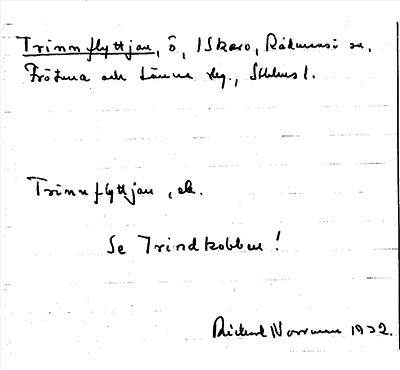 Trinnflyttjan, ö, i Skaro, Rådmansö sn,
Frötuna och Länna slg., Sthlms l.
Trinnflyttjan, ek.
Se Trindkobben!
Rickard Norrman 1932.